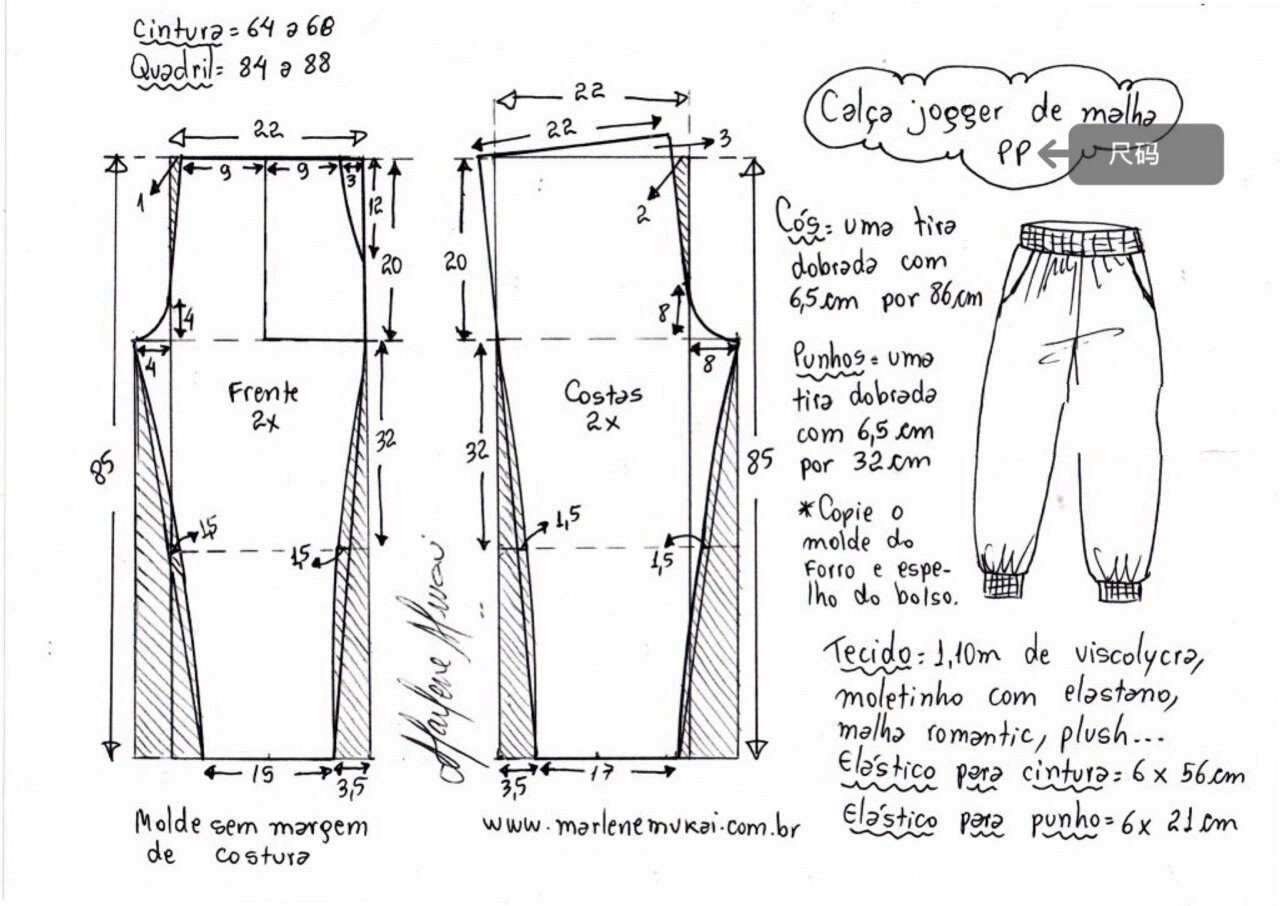 Cintura = 64 a 68
Quadril = 84 a 88
22
9
9
3
12
1
20
4
4
Frente
2x
32
85
1,5
1,5
15
3,5
Molde sem margem
de costura
22
22
3
2
20
8
8
Costas
2x
32
85
1,5
1,5
3,5
17
Marlene Mukai
www.marlenemukai.com.br
Calça jogger de malha
PP
尺码
Cós = uma tira
dobrada com
6,5cm por 86cm
Punhos = uma
tira dobrada
com 6,5 cm
por 32cm
*Copie o
molde do
Forro e espe-
lho do bolso.
Tecido = 1,10m de viscolycra,
moletinho com elastano,
malha romantic, plush...
Elástico para cintura = 6 x 56cm
Elástico para punho = 6 x 21cm